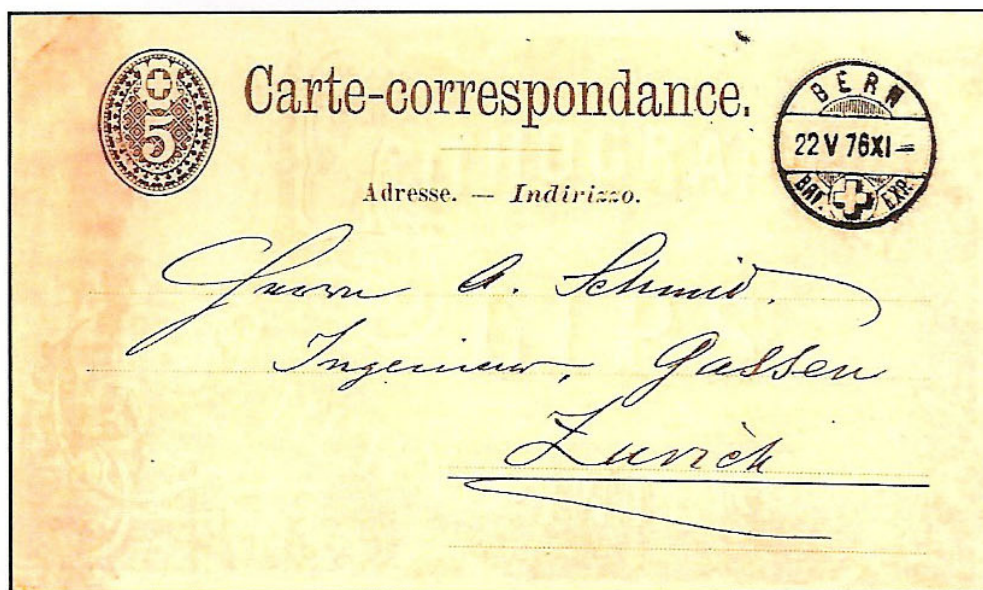 5
Carte-correspondance.
BERN
22 V 76 XI -
BRF. EXP.
Adresse. — Indirizzo.
Herrn A. Schmid.
Ingenieur, Gassen
Zürich